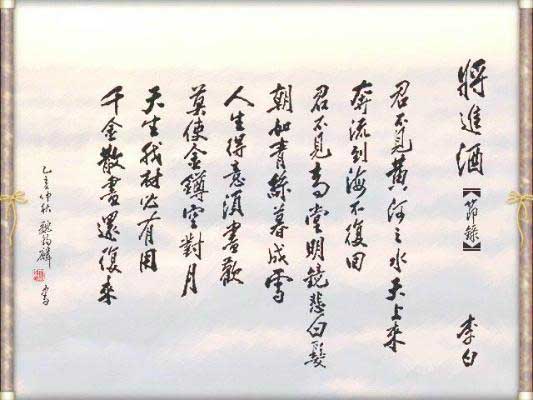 將進酒【節錄】 李白
君不見黃河之水天上來
奔流到海不復回
君不見高堂明鏡悲白髮
朝如青絲暮成雪
人生得意須盡歡
莫使金鐏空對月
天生我材必有用
千金散盡還復來
乙亥仲秋 麟 書